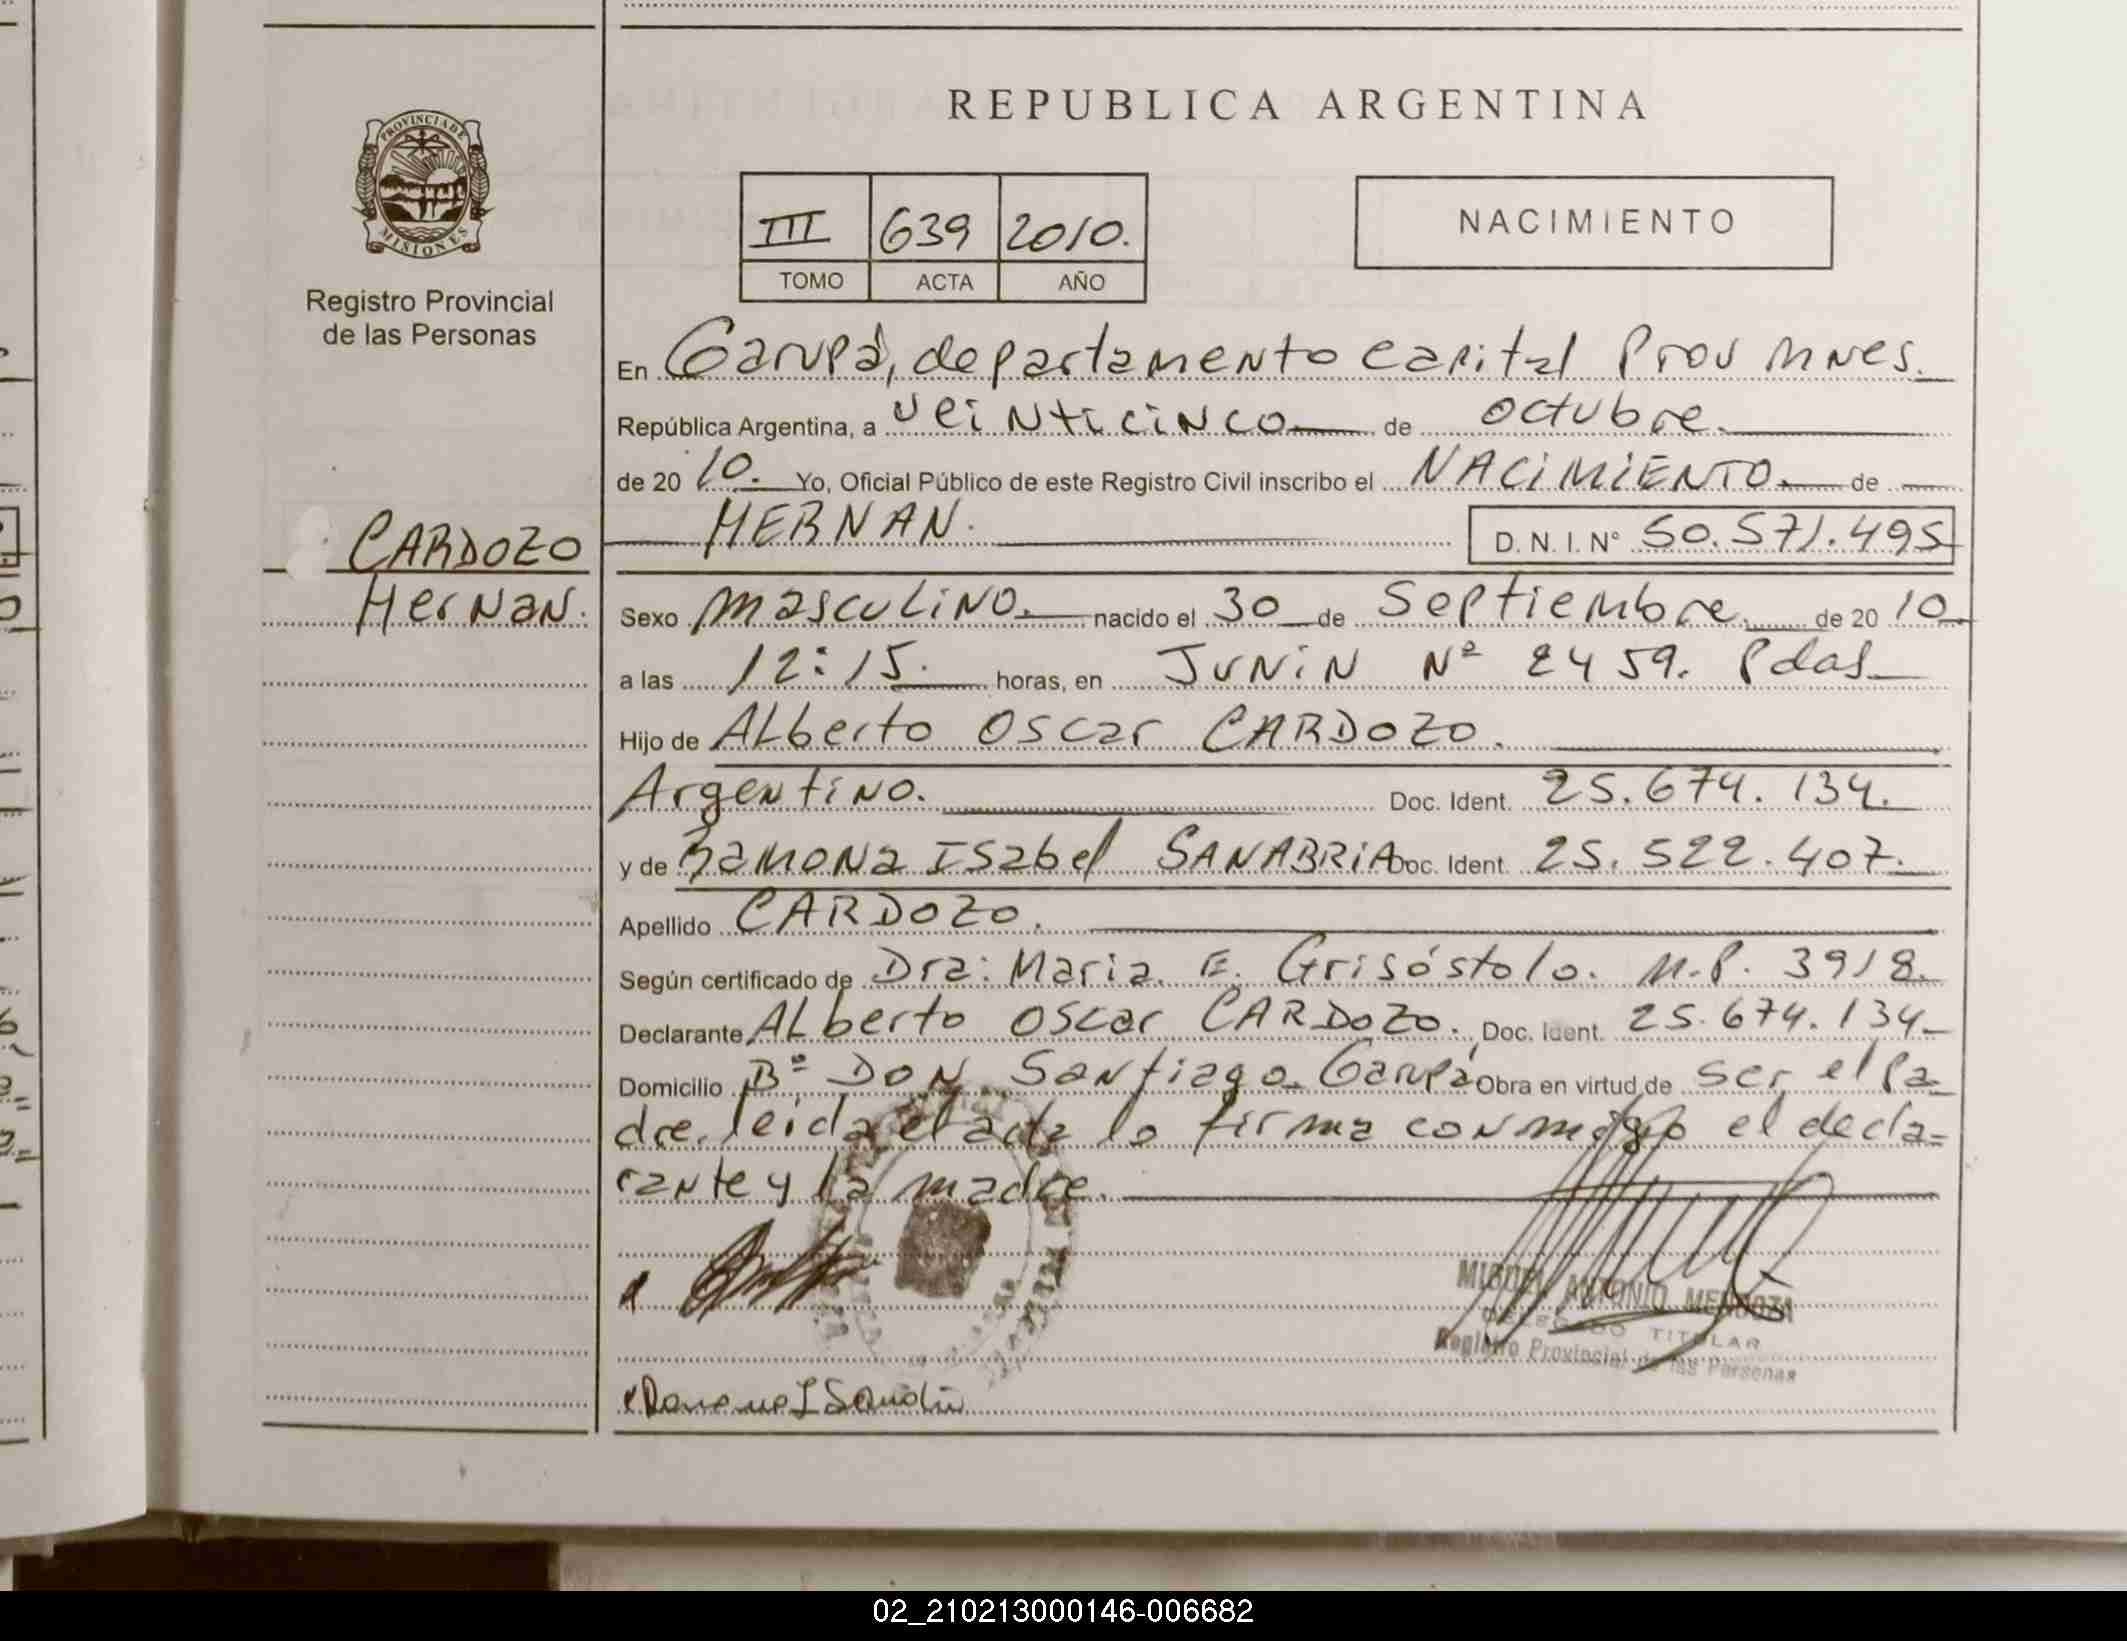 REPUBLICA ARGENTINA
PROVINCIA DE
MISIONES
Registro Provincial
de las Personas
III 639 2010.
TOMO ACTA AÑO
NACIMIENTO
En Garupá, departamento capital Prov Mnes.
República Argentina, a veinticinco de octubre.
de 20 10. Yo, Oficial Público de este Registro Civil inscribo el NACIMIENTO. de
HERNAN. D. N. I. N° 50.571.495
CARDOZO
Hernan.
Sexo masculino. nacido el 30 de Septiembre. de 20 10
a las 12:15. horas, en JUNIN Nº 2459. Pdas
Hijo de Alberto Oscar CARDOZO.
Argentino. Doc. Ident. 25.674.134.
y de Ramona Isabel SANABRIA Doc. Ident. 25.522.407.
Apellido CARDOZO.
Según certificado de Dra: Maria. E. Grisóstolo. M.P. 3918.
Declarante Alberto Oscar CARDOZO. Doc. Ident. 25.674.134
Domicilio Bº DON Santiago. Garupá Obra en virtud de ser el pa-
dre. leida el acta lo firma conmigo el decla-
rante y la madre.
MIGUEL ANTONIO MENDOZA
DELEGADO TITULAR
Registro Provincial de las Personas
02_210213000146-006682